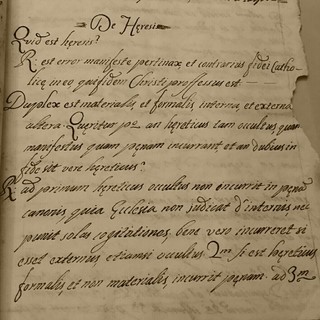 De Heresi
Quid est heresis?
R: est error manifeste pertinax et contrarius fidei Catho-
licæ in eo qui fidem Christi professus est
Duplex est materialis, et formalis, interna, et externa
altera. Queritur pº an hereticus tam occultus quam
manifestus quam pęnam incurrant et an dubius in
fide sit vere hereticus?
R ad primum hereticus occultus non incurrit in pęnas
canonis, quia Ecclesia non iudicat d'internis nec
punit solas cogitationes, bene vero incurreret si
esset externus etiamsi occultus. 2º si est hereticus
formalis et non materialis, incurrit pęnam. ad 3m